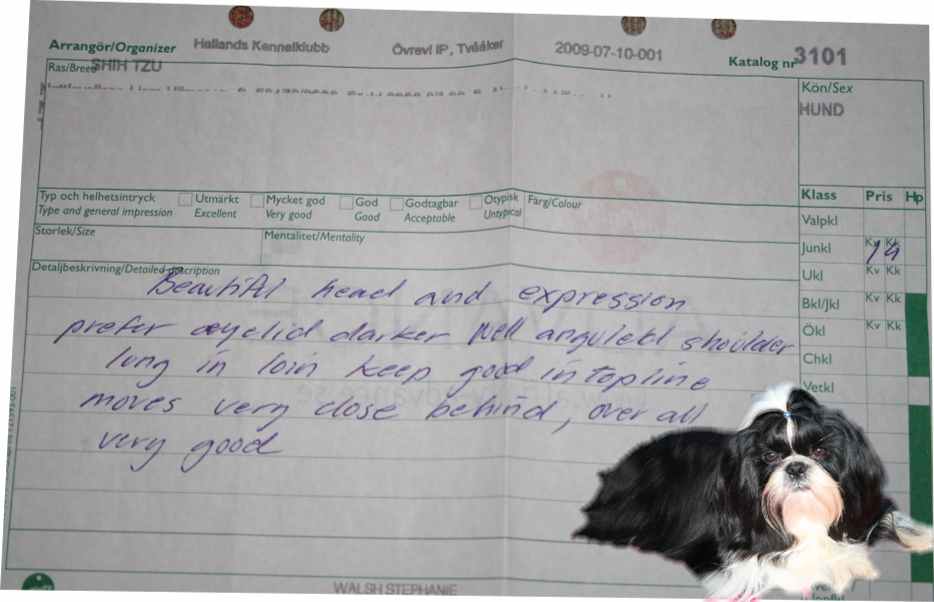 Arrangör/Organizer Hallands Kennelklubb Övrevi IP, Tvååker 2009-07-10-001 Katalog nr 3101
Ras/Breed SHIH TZU Kön/Sex
HUND
Klass Pris Hp
Typ och helhetsintryck Utmärkt Mycket god God Godtagbar Otypisk Färg/Colour
Type and general impression Excellent Very good Good Acceptable Untypical
Valpkl
Storlek/Size Mentalitet/Mentality
Junkl Kv Kk 14
Detaljbeskrivning/Detailed description
Ukl Kv Kk
Beautiful head and expression
Bkl/Jkl Kv Kk
prefer eyelid darker well anguleld shoulder
Ökl Kv Kk
long in loin keep good in topline
Chkl
moves very close behind, over all
Vetkl
very good
WALSH STEPHANIE